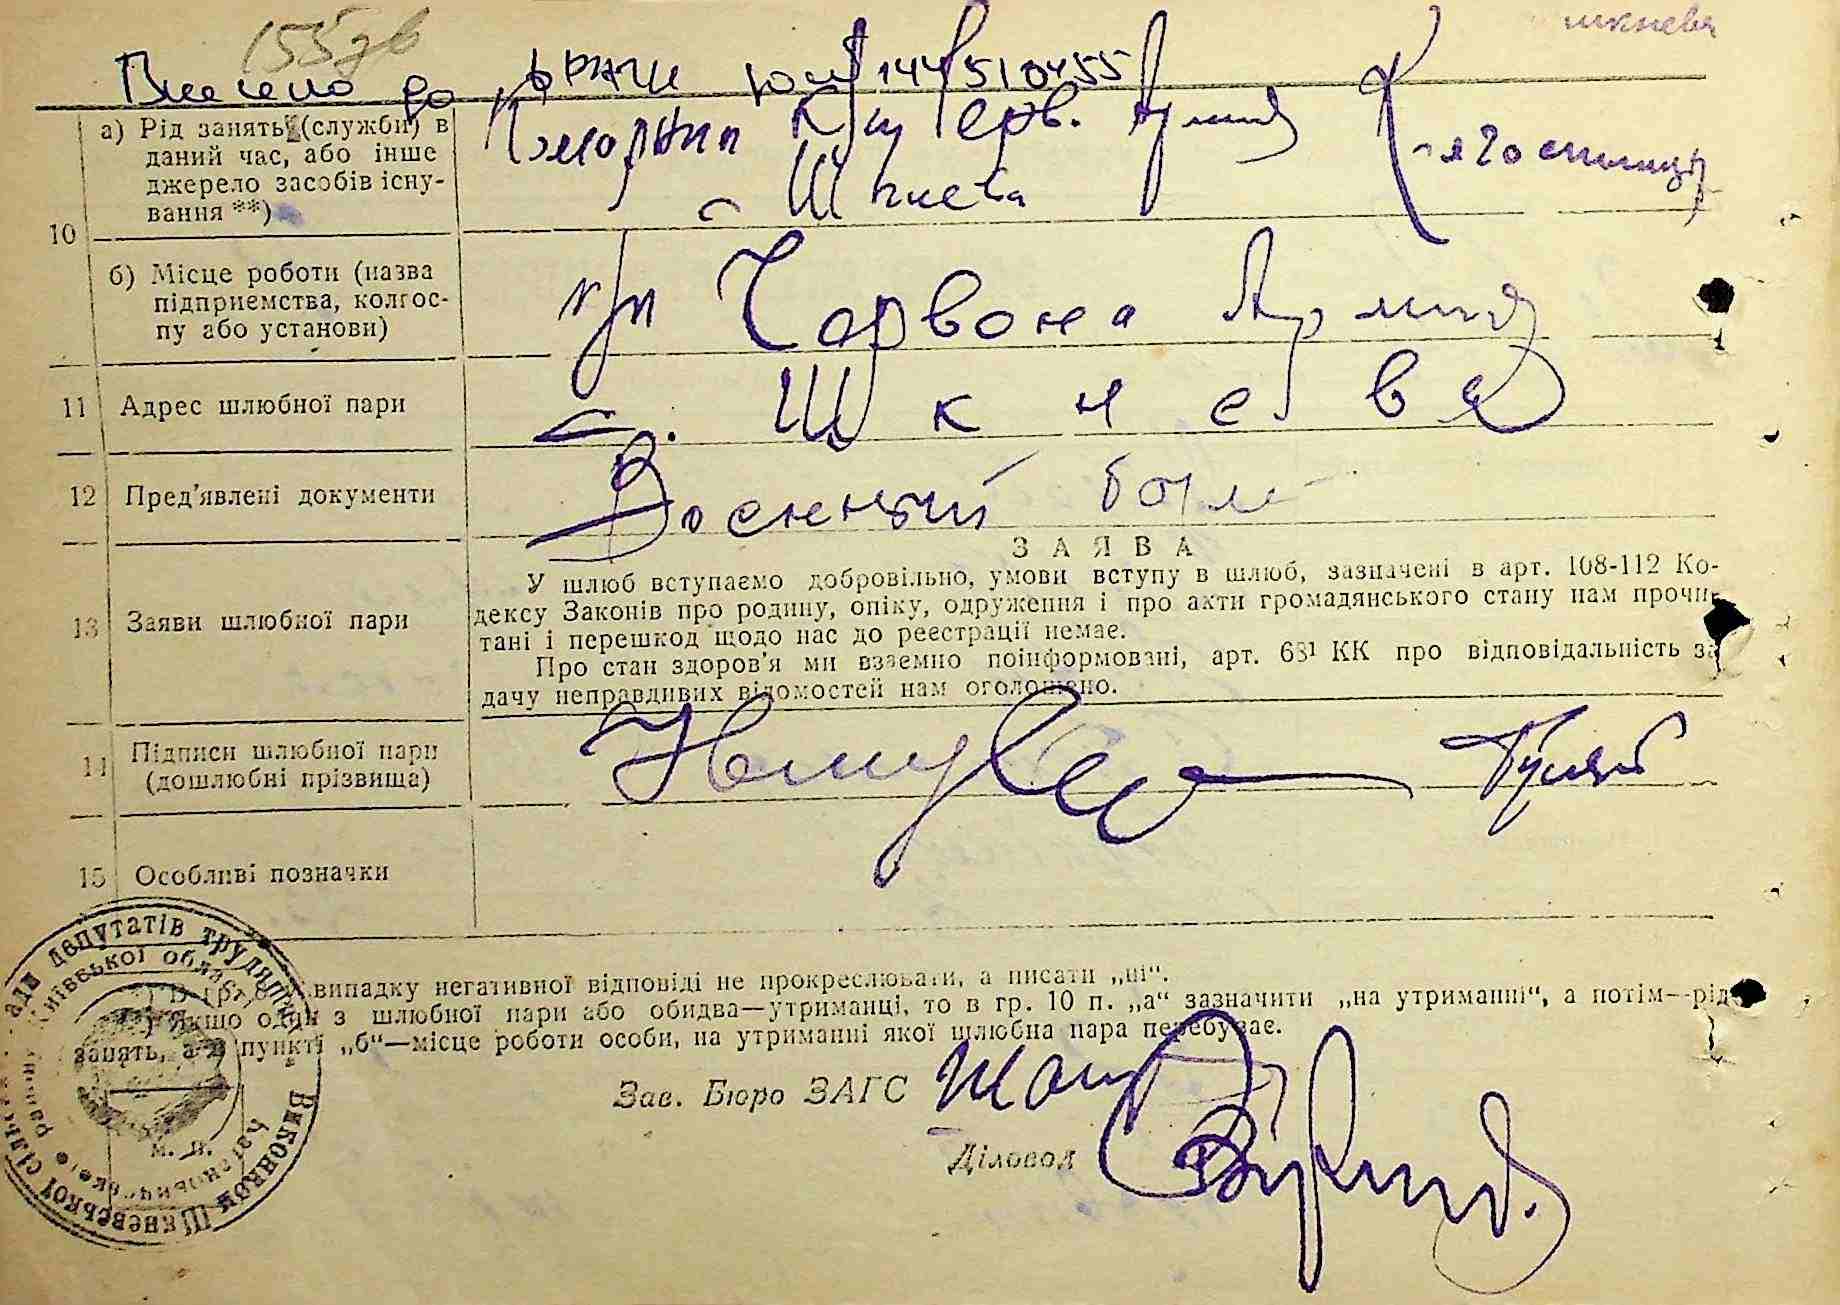 155 зв
шкнева
Внесено до ДРАЦС 144510455
10
а) Рід занять (служби) в
даний час, або інше
джерело засобів існу-
вання **)
к/г Черв. Армия
с Шкнева
б) Місце роботи (назва
підприємства, колгос-
пу або установи)
к/г Чорвона Армия
11 Адрес шлюбної пари
с. Шкнева
12 Пред'явлені документи
Военный
13 Заяви шлюбної пари
ЗАЯВА
У шлюб вступаємо добровільно, умови вступу в шлюб, зазначені в арт. 108-112 Ко-
дексу Законів про родину, опіку, одруження і про акти громадянського стану нам прочи-
тані і перешкод щодо нас до реєстрації немає.
Про стан здоров'я ми взаємно поінформовані, арт. 68¹ КК про відповідальність за
дачу неправдивих відомостей нам оголошено.
14 Підписи шлюбної пари
(дошлюбні прізвища)
15 Особливі позначки
випадку негативної відповіді не прокреслювати, а писати „ні“.
Якщо один з шлюбної пари або обидва—утриманці, то в гр. 10 п. „а“ зазначити „на утриманні“, а потім—рід
занять, а в пункті „б“—місце роботи особи, на утриманні якої шлюбна пара перебуває.
Зав. Бюро ЗАГС
Діловод
М. П.
депутатів трудящих
Київської області
Виконком Шкневської